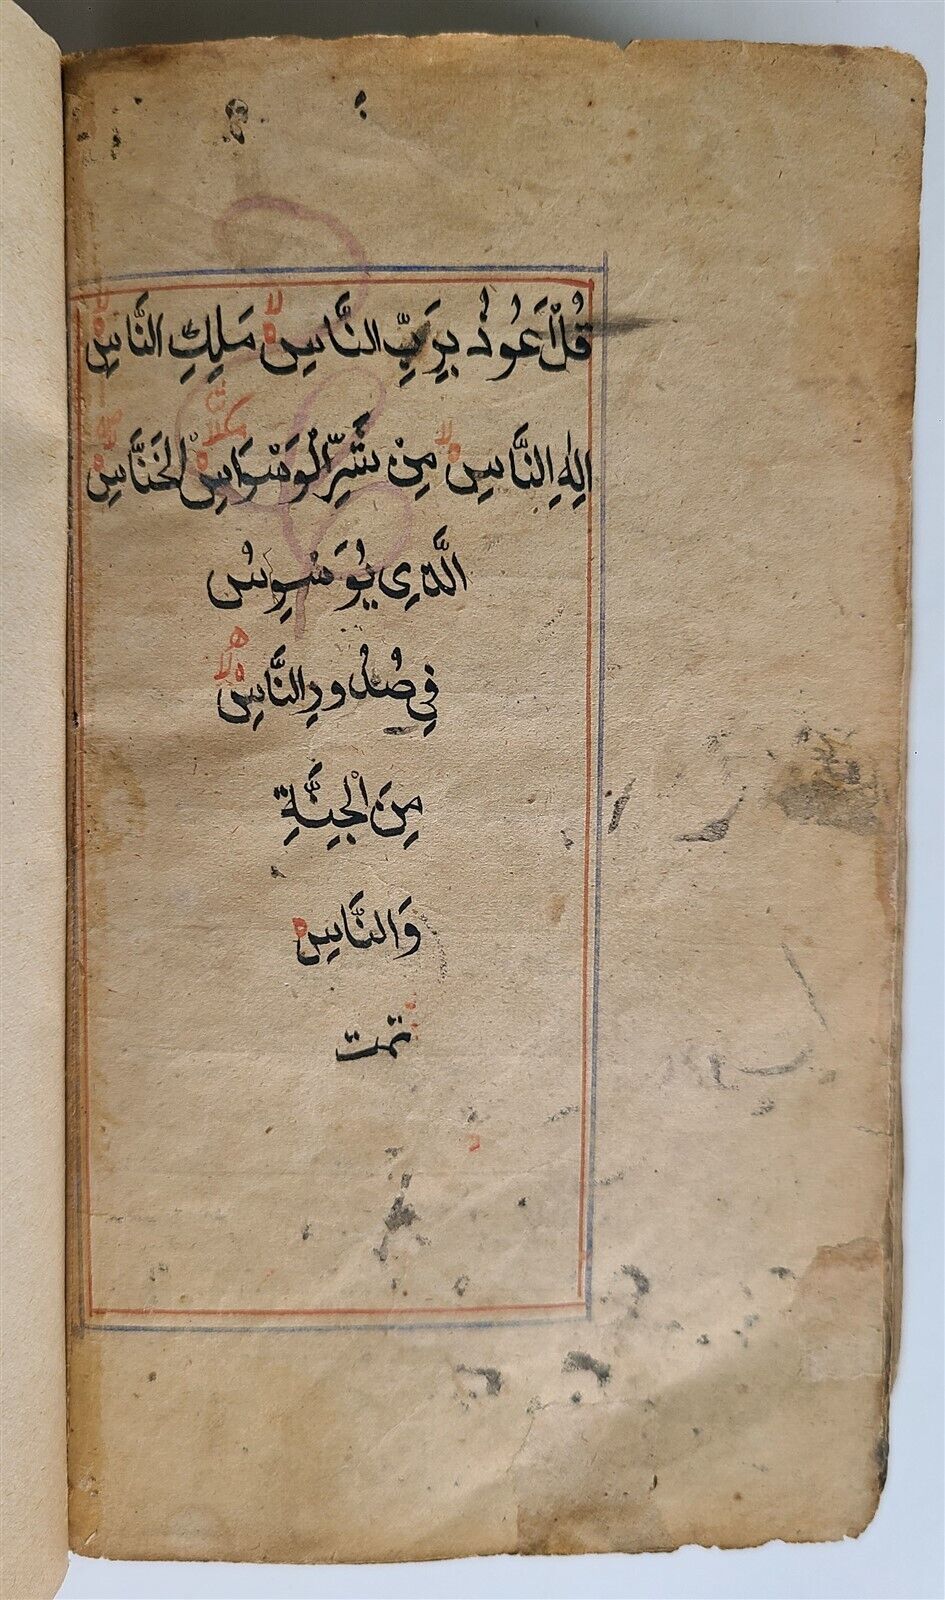 قُلْ أَعُوذُ بِرَبِّ النَّاسِ لا مَلِكِ النَّاسِ لا
اِلٰهِ النَّاسِ لا مِنْ شَرِّ الْوَسْوَاسِ الْخَنَّاسِ
الَّذِي يُوَسْوِسُ
فِي صُدُورِ النَّاسِ لا
مِنَ الْجِنَّةِ
وَالنَّاسِ
تمت